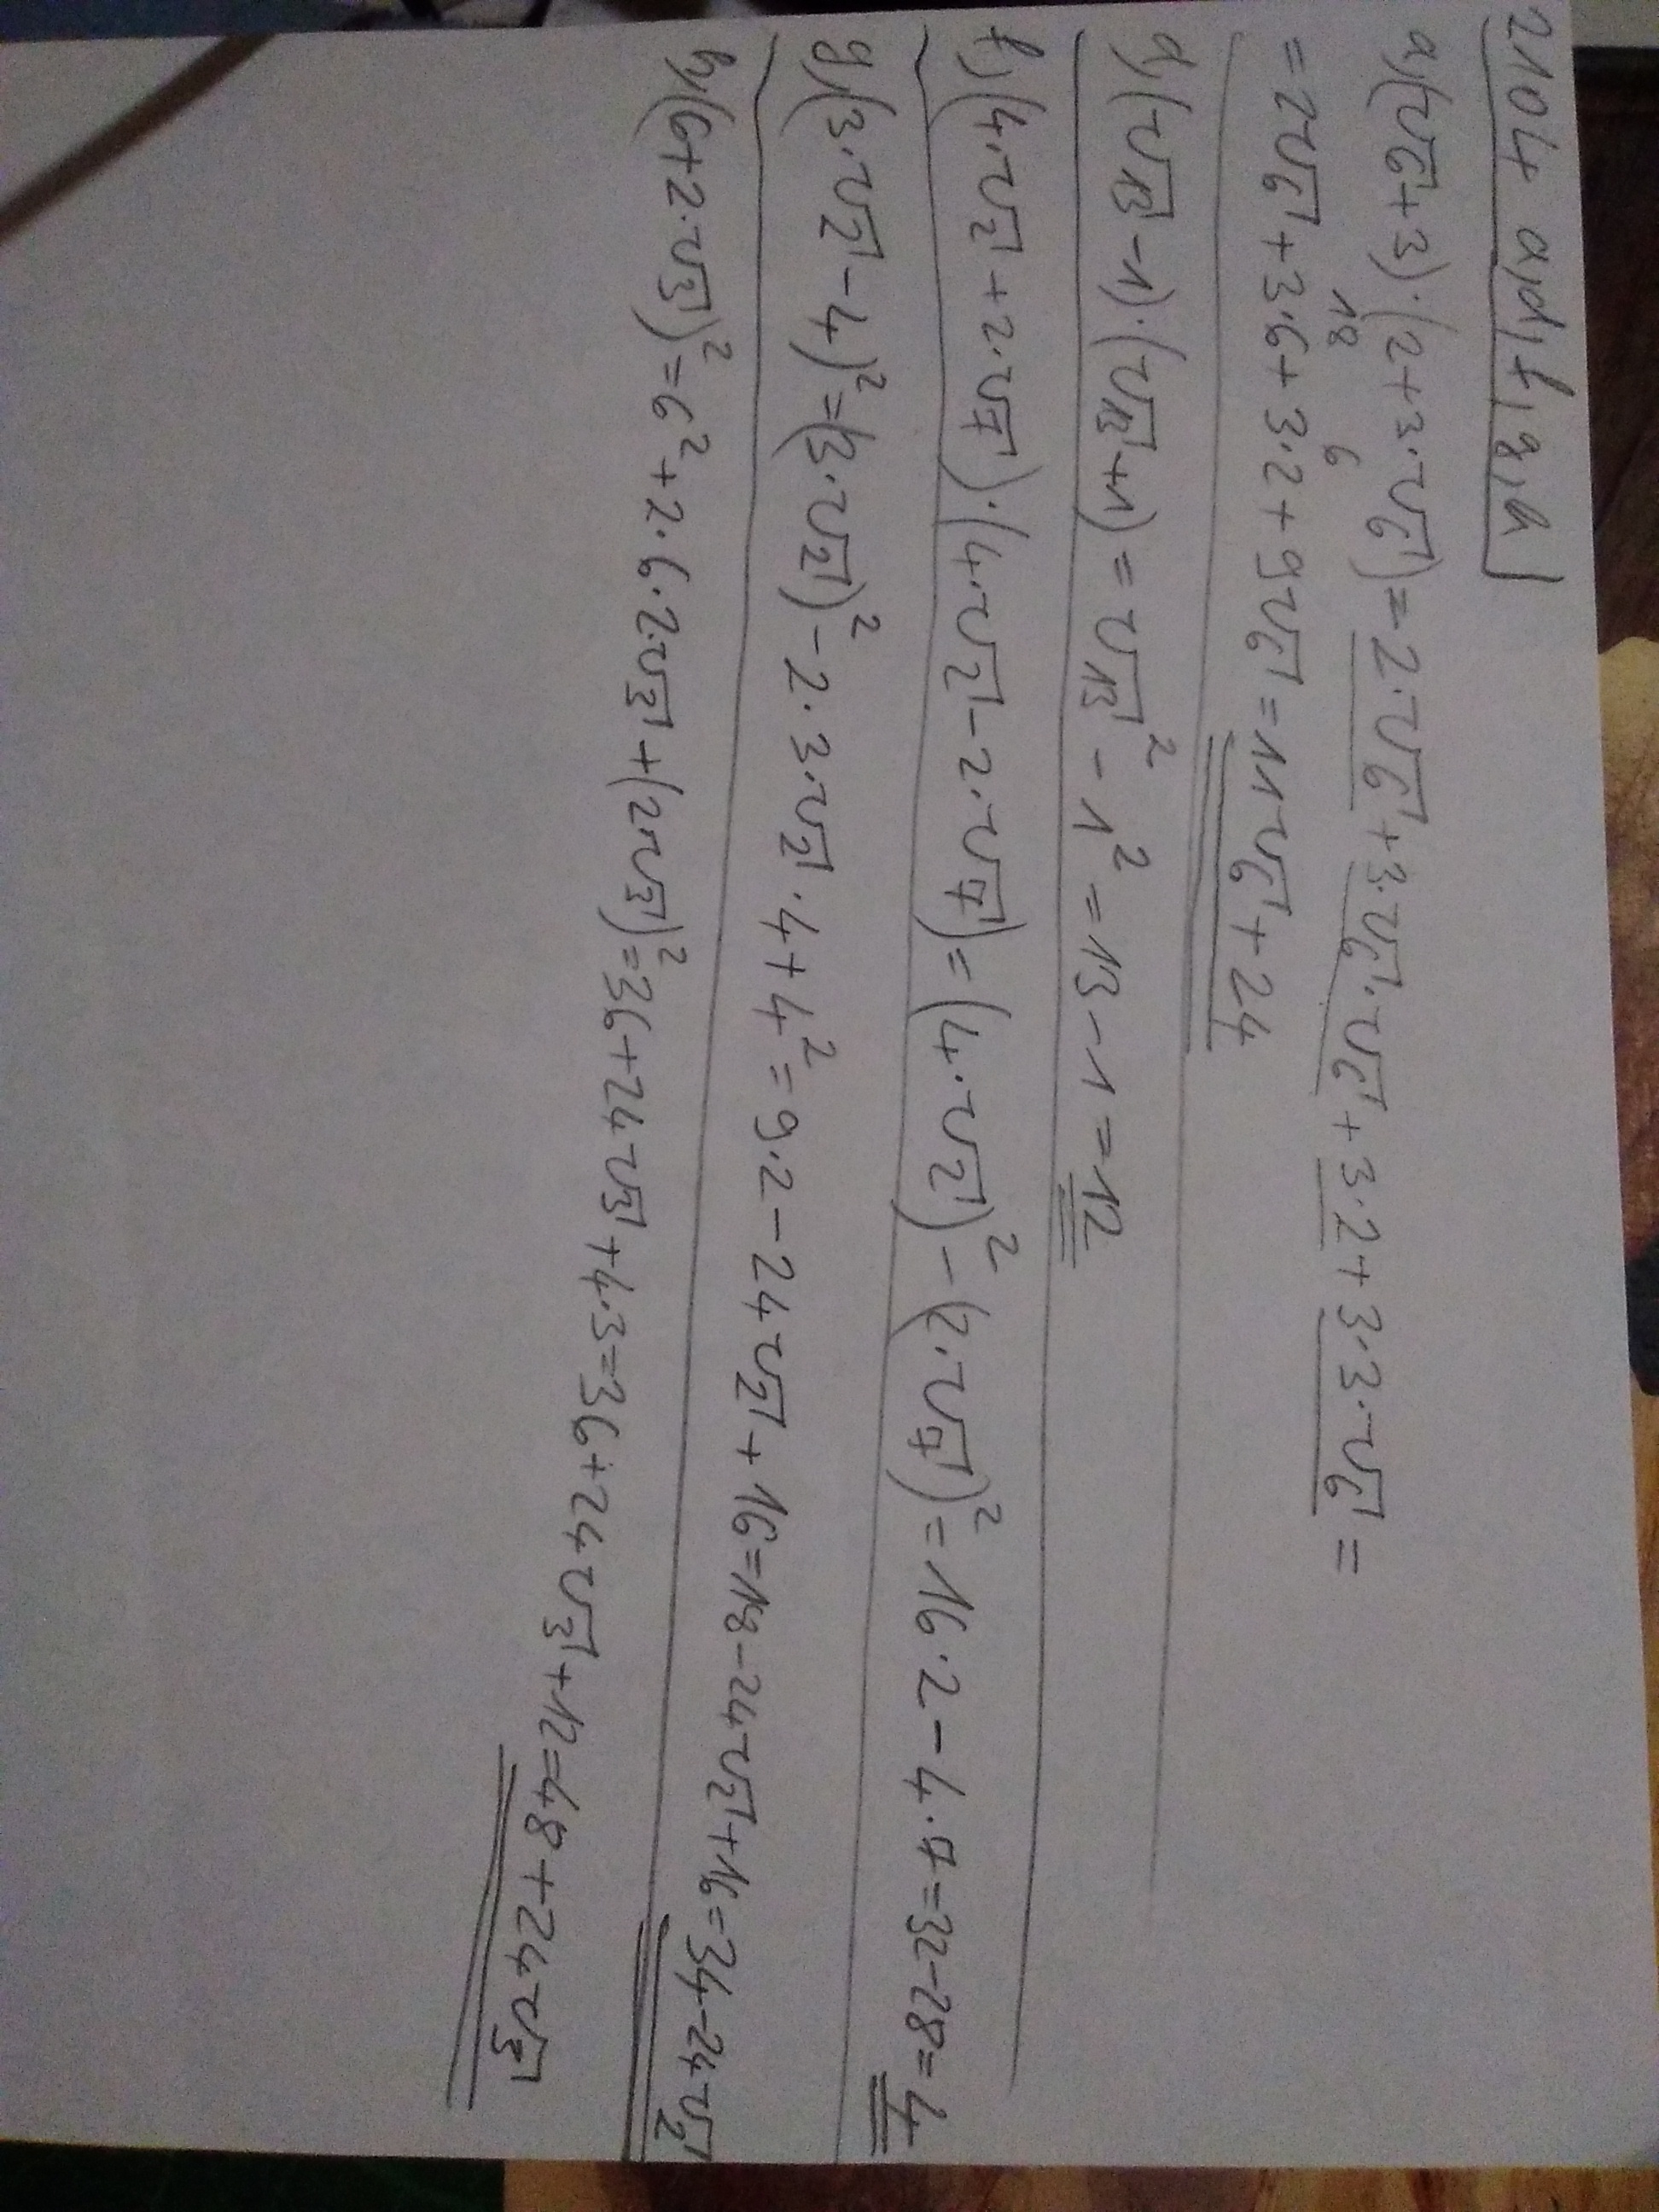 2104 a,d,f,g,h
a,(√6+3)·(2+3·√6)=2·√6+3·√6·√6+3·2+3·3·√6=
18 6
=2√6+3·6+3·2+9√6=11√6+24
d,(√13-1)·(√13+1)=√13²-1²=13-1=12
f,(4·√2+2·√7)·(4·√2-2·√7)=(4·√2)²-(2·√7)²=16·2-4·7=32-28=4
g,(3·√2-4)²=(3·√2)²-2·3·√2·4+4²=9·2-24√2+16=18-24√2+16=34-24√2
h,(6+2·√3)²=6²+2·6·2·√3+(2√3)²=36+24√3+4·3=36+24√3+12=48+24√3